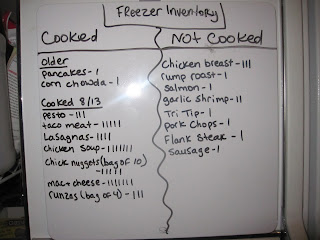 Freezer Inventory
Cooked
Older
pancakes - I
corn chowda - I
Cooked 8/13
pesto - III
taco meat - IIIII
Lasagnas - IIII
chicken soup - IIIIIII
chick nuggets (bag of 10)
- IIIII
mac + cheese - IIIIIII
runzas (bag of 4) - III
Not Cooked
Chicken breast - III
rump roast - I
Salmon - I
garlic shrimp - II
Tri Tip - I
Pork Chops - I
Flank Steak - I
Sausage - I